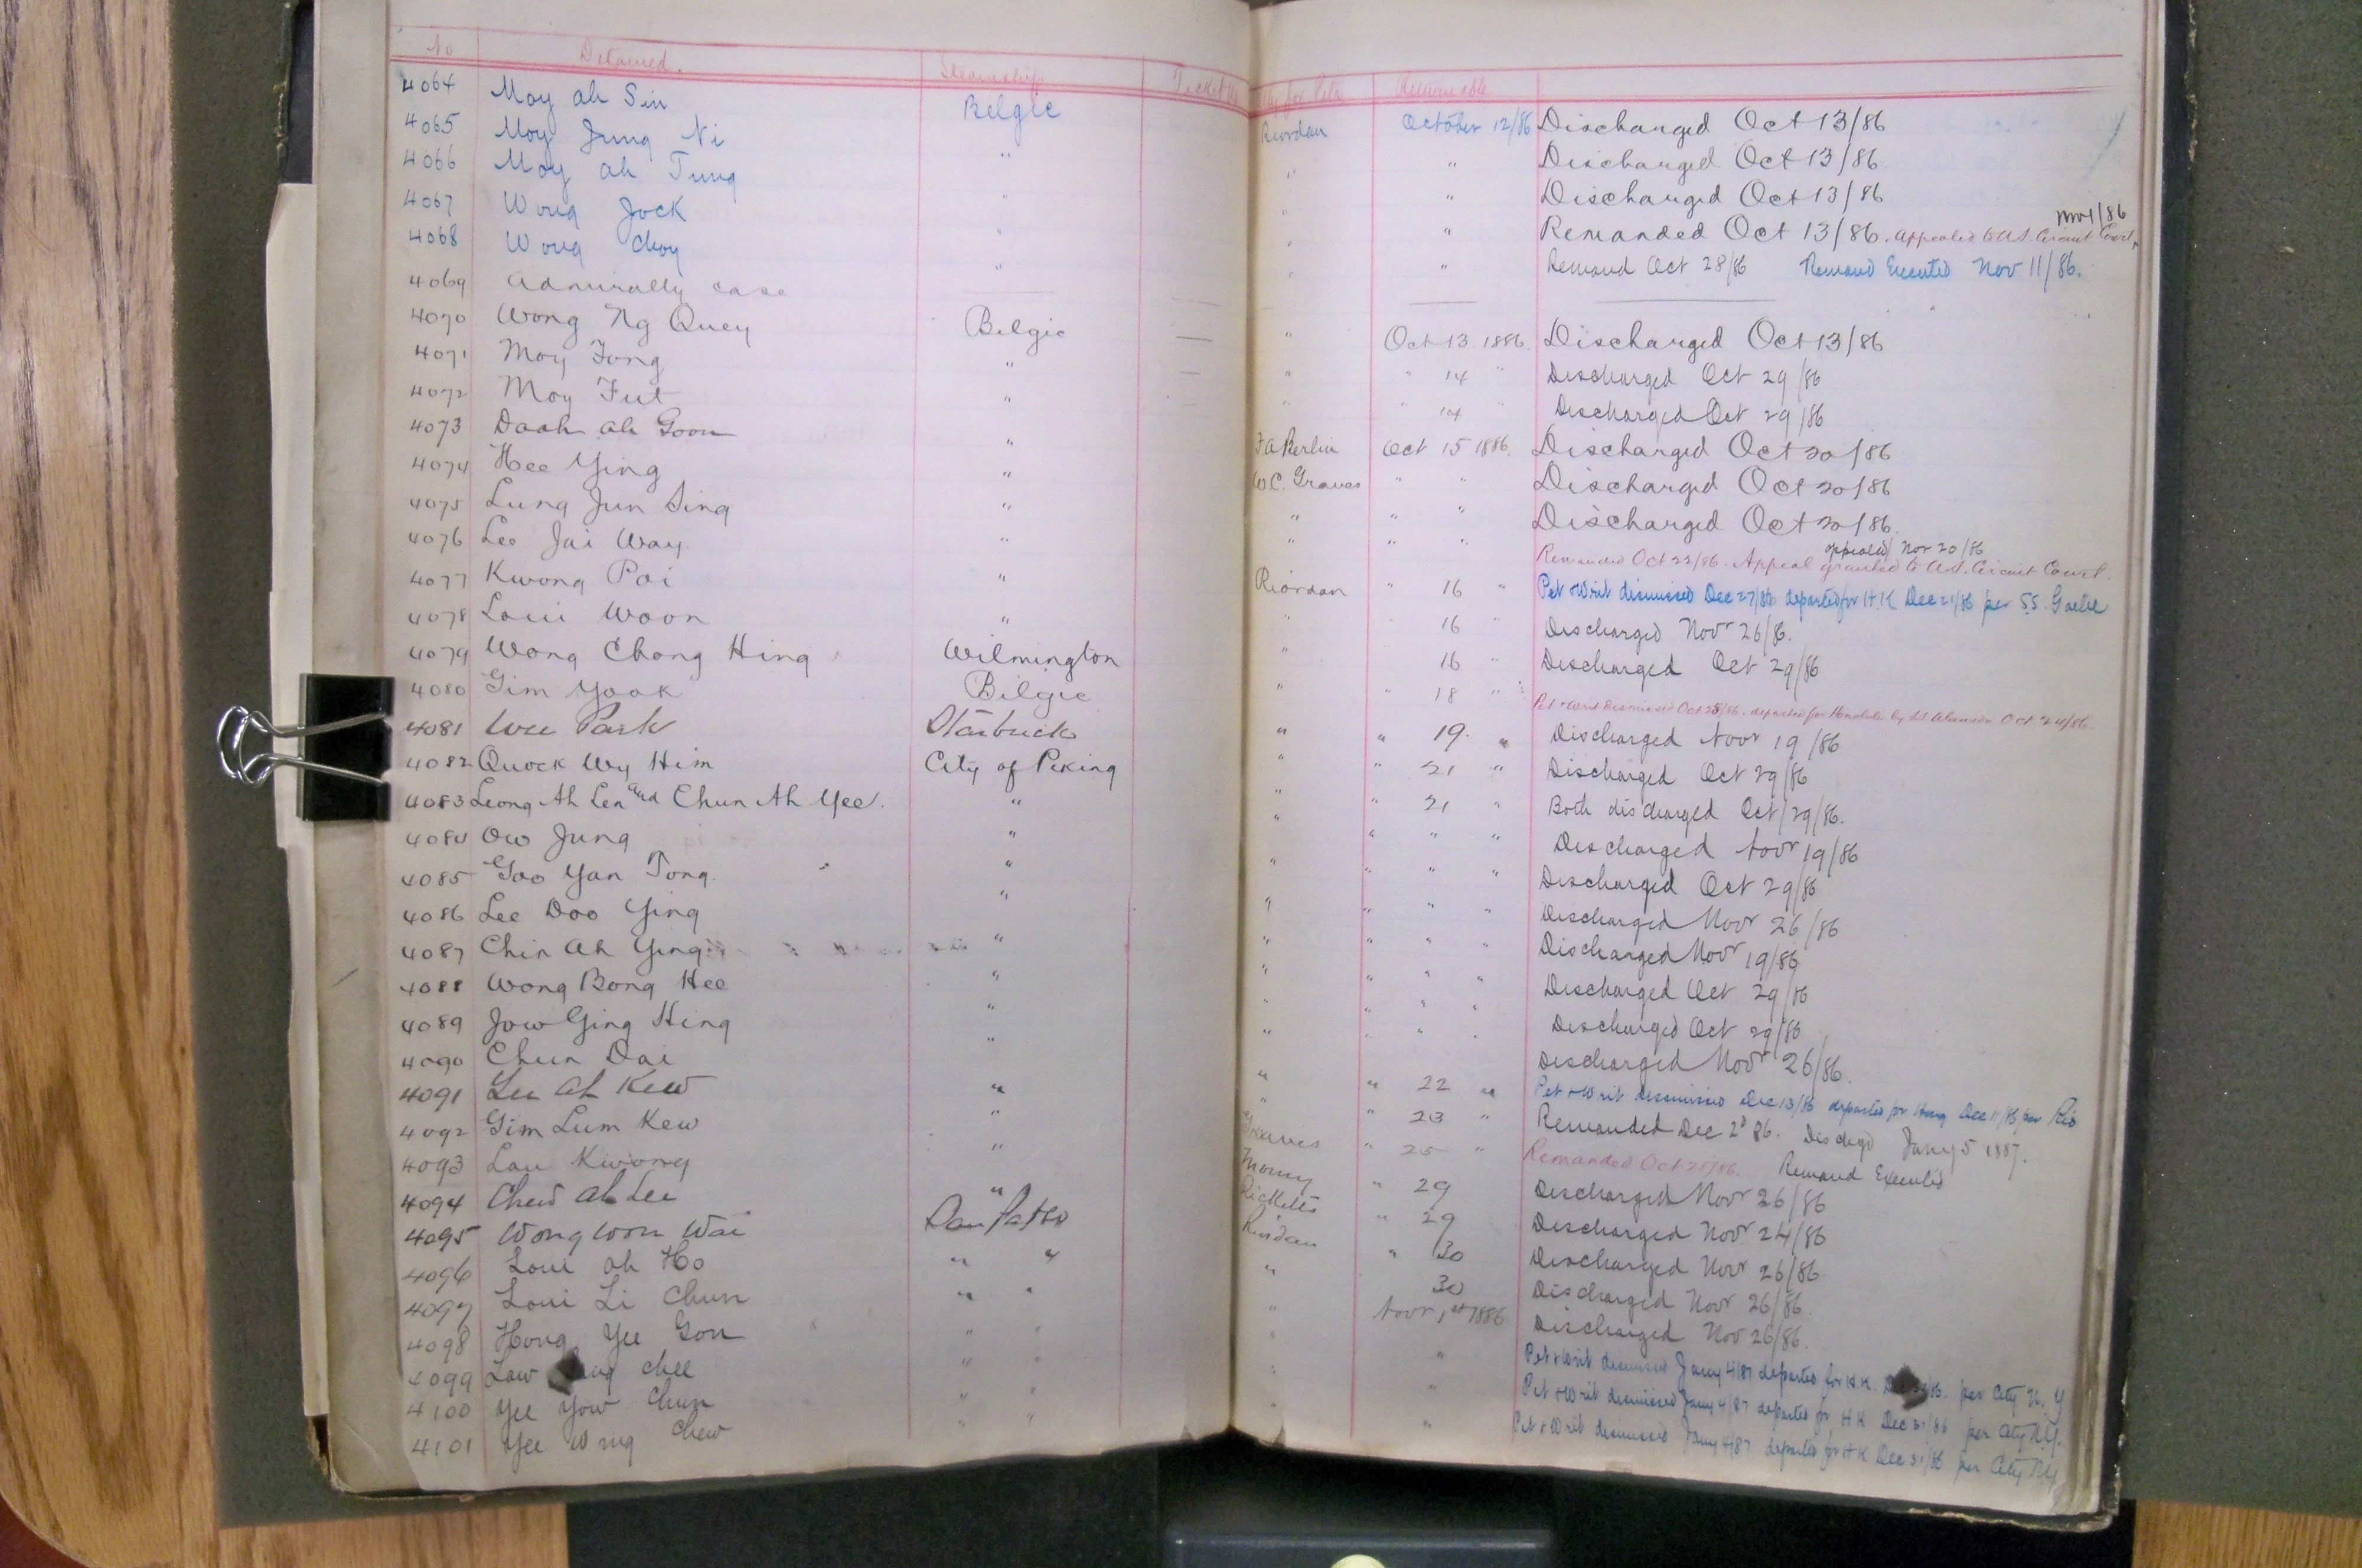 No Detained. Steamship Ticket No Atty for Petr Returnable
4064 Moy ah Sin Belgic Riordan October 12/86 Discharged Oct 13/86
4065 Moy Jung Ni " " " Discharged Oct 13/86
4066 Moy ah Tung " " " Discharged Oct 13/86
4067 Wong Jock " " " Remanded Oct 13/86. Appealed to U.S. Circuit Court, Nov 1/86
4068 Wong Choy " " " Remand Oct 28/86 Remand Executed Nov 11/86.
4069 Admiralty case
4070 Wong Ng Quey Belgic " Oct 13 1886. Discharged Oct 13/86
4071 Moy Fong " " " 14 " Discharged Oct 29/86
4072 Moy Fut " " " 14 " Discharged Oct 29/86
4073 Daah ah Goon " F A Berlin Oct 15 1886. Discharged Oct 20/86
4074 Hee Ying " W.C. Graves " " Discharged Oct 20/86
4075 Lung Jun Sing " " " " Discharged Oct 20/86.
4076 Leo Jai Way. " " " " Remanded Oct 22/86. Appeal granted to U.S. Circuit Court. appealed Nov 20/86
4077 Kwong Poi " Riordan " 16 " Pet & Writ dismissed Dec 27/86 departed for H.K. Dec 21/86 per S.S. Gaelic
4078 Loui Woon " " " 16 " Discharged Novr 26/86.
4079 Wong Chong Hing Wilmington " 16 " Discharged Oct 29/86
4080 Gim Yook Belgic " " 18 " Pet & Writ dismissed Oct 28/86. departed for Honolulu by S.S. Alameda Oct 24/86.
4081 Wee Park Starbuck " " 19. " Discharged Novr 19/86
4082 Quock Wy Him City of Peking " " 21 " Discharged Oct 29/86
4083 Leong Ah Len and Chun Ah Yee. " " " 21 " Both discharged Oct/29/86.
4084 Ow Jung " " " " " Discharged Novr 19/86
4085 Goo Yan Tong. " " " " " Discharged Oct 29/86
4086 Lee Doo Ying " " " " " Discharged Novr 26/86
4087 Chin Ah Ying " " " " " Discharged Novr 19/86
4088 Wong Bong Hee " " " " " Discharged Oct 29/86
4089 Jow Ging Hing " " " " " Discharged Oct 29/86
4090 Chun Dai " " " " " Discharged Novr 26/86.
4091 Lee Ah Kew " " " 22 " Pet & Writ dismissed Dec 13/86 departed for Hong Dec 11/86 per Rio
4092 Gim Lum Kew " " " 23 " Remanded Dec 2d 86. Dischgd Jany 5 1887.
4093 Lau Kwong " Greaves " 25 " Remanded Oct 25/86. Remand Executed
4094 Chew Ah Lee " " 29 Discharged Novr 26/86
4095 Wong Won Wai San Pablo Ricketts " 29 Discharged Novr 24/86
4096 Loui ah Ho " " Riordan " 30 Discharged Novr 26/86
4097 Loui Li Chun " " " 30 Discharged Novr 26/86.
4098 Hong Yee Gon " " " Novr 1st 1886 Discharged Nov 26/86.
4099 Law chee " " " " Pet & Writ dismissed Jany 4/87 departed for H.K. per City N. Y
4100 Yee Yow Chun " " " " Pet & Writ dismissed Jany 4/87 departed for H K Dec 31/86 per City N.Y.
4101 Yee Wing Chew " " " " Pet & Writ dismissed Jany 4/87 departed for H K Dec 31/86 per City N.Y.